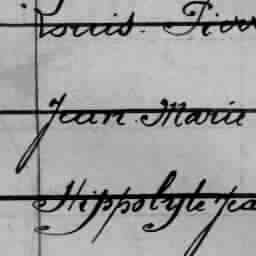 Louis. Pierr
Jean Marie
Hippolyte Jea